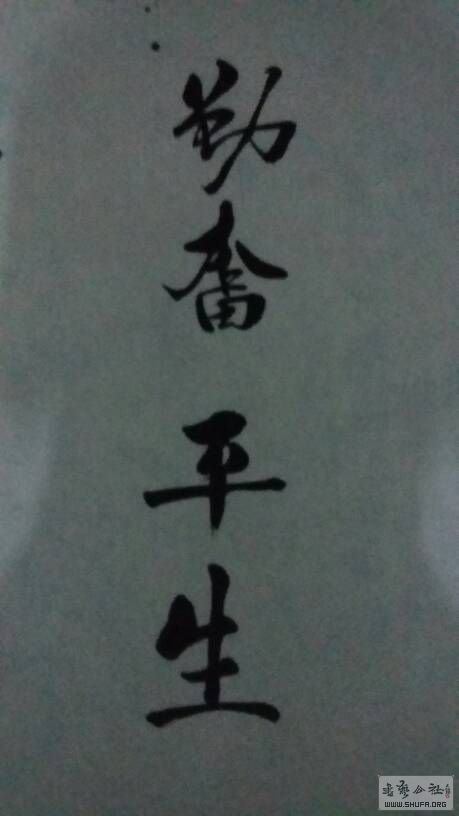 勤奋平生
书艺公社
WWW.SHUFA.ORG